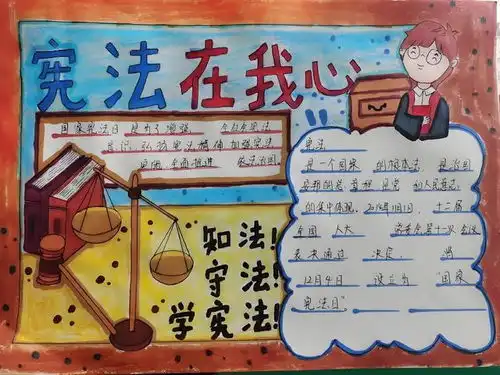 宪法在我心
国家宪法日 是为了增强 全社会宪法
意识 弘扬宪法精神 加强宪法
实施 全面推进 依法治国
知法!
守法!
学宪法!
宪法
是一个国家 的根本法 是治国
安邦的总 章程 是党 和人民意志
的集中体现。2014年11月1日, 十二届
全国 人大 常委会第十一次 会议
表决通过 决定, 将
12月4日 设立为 "国家
宪法日"